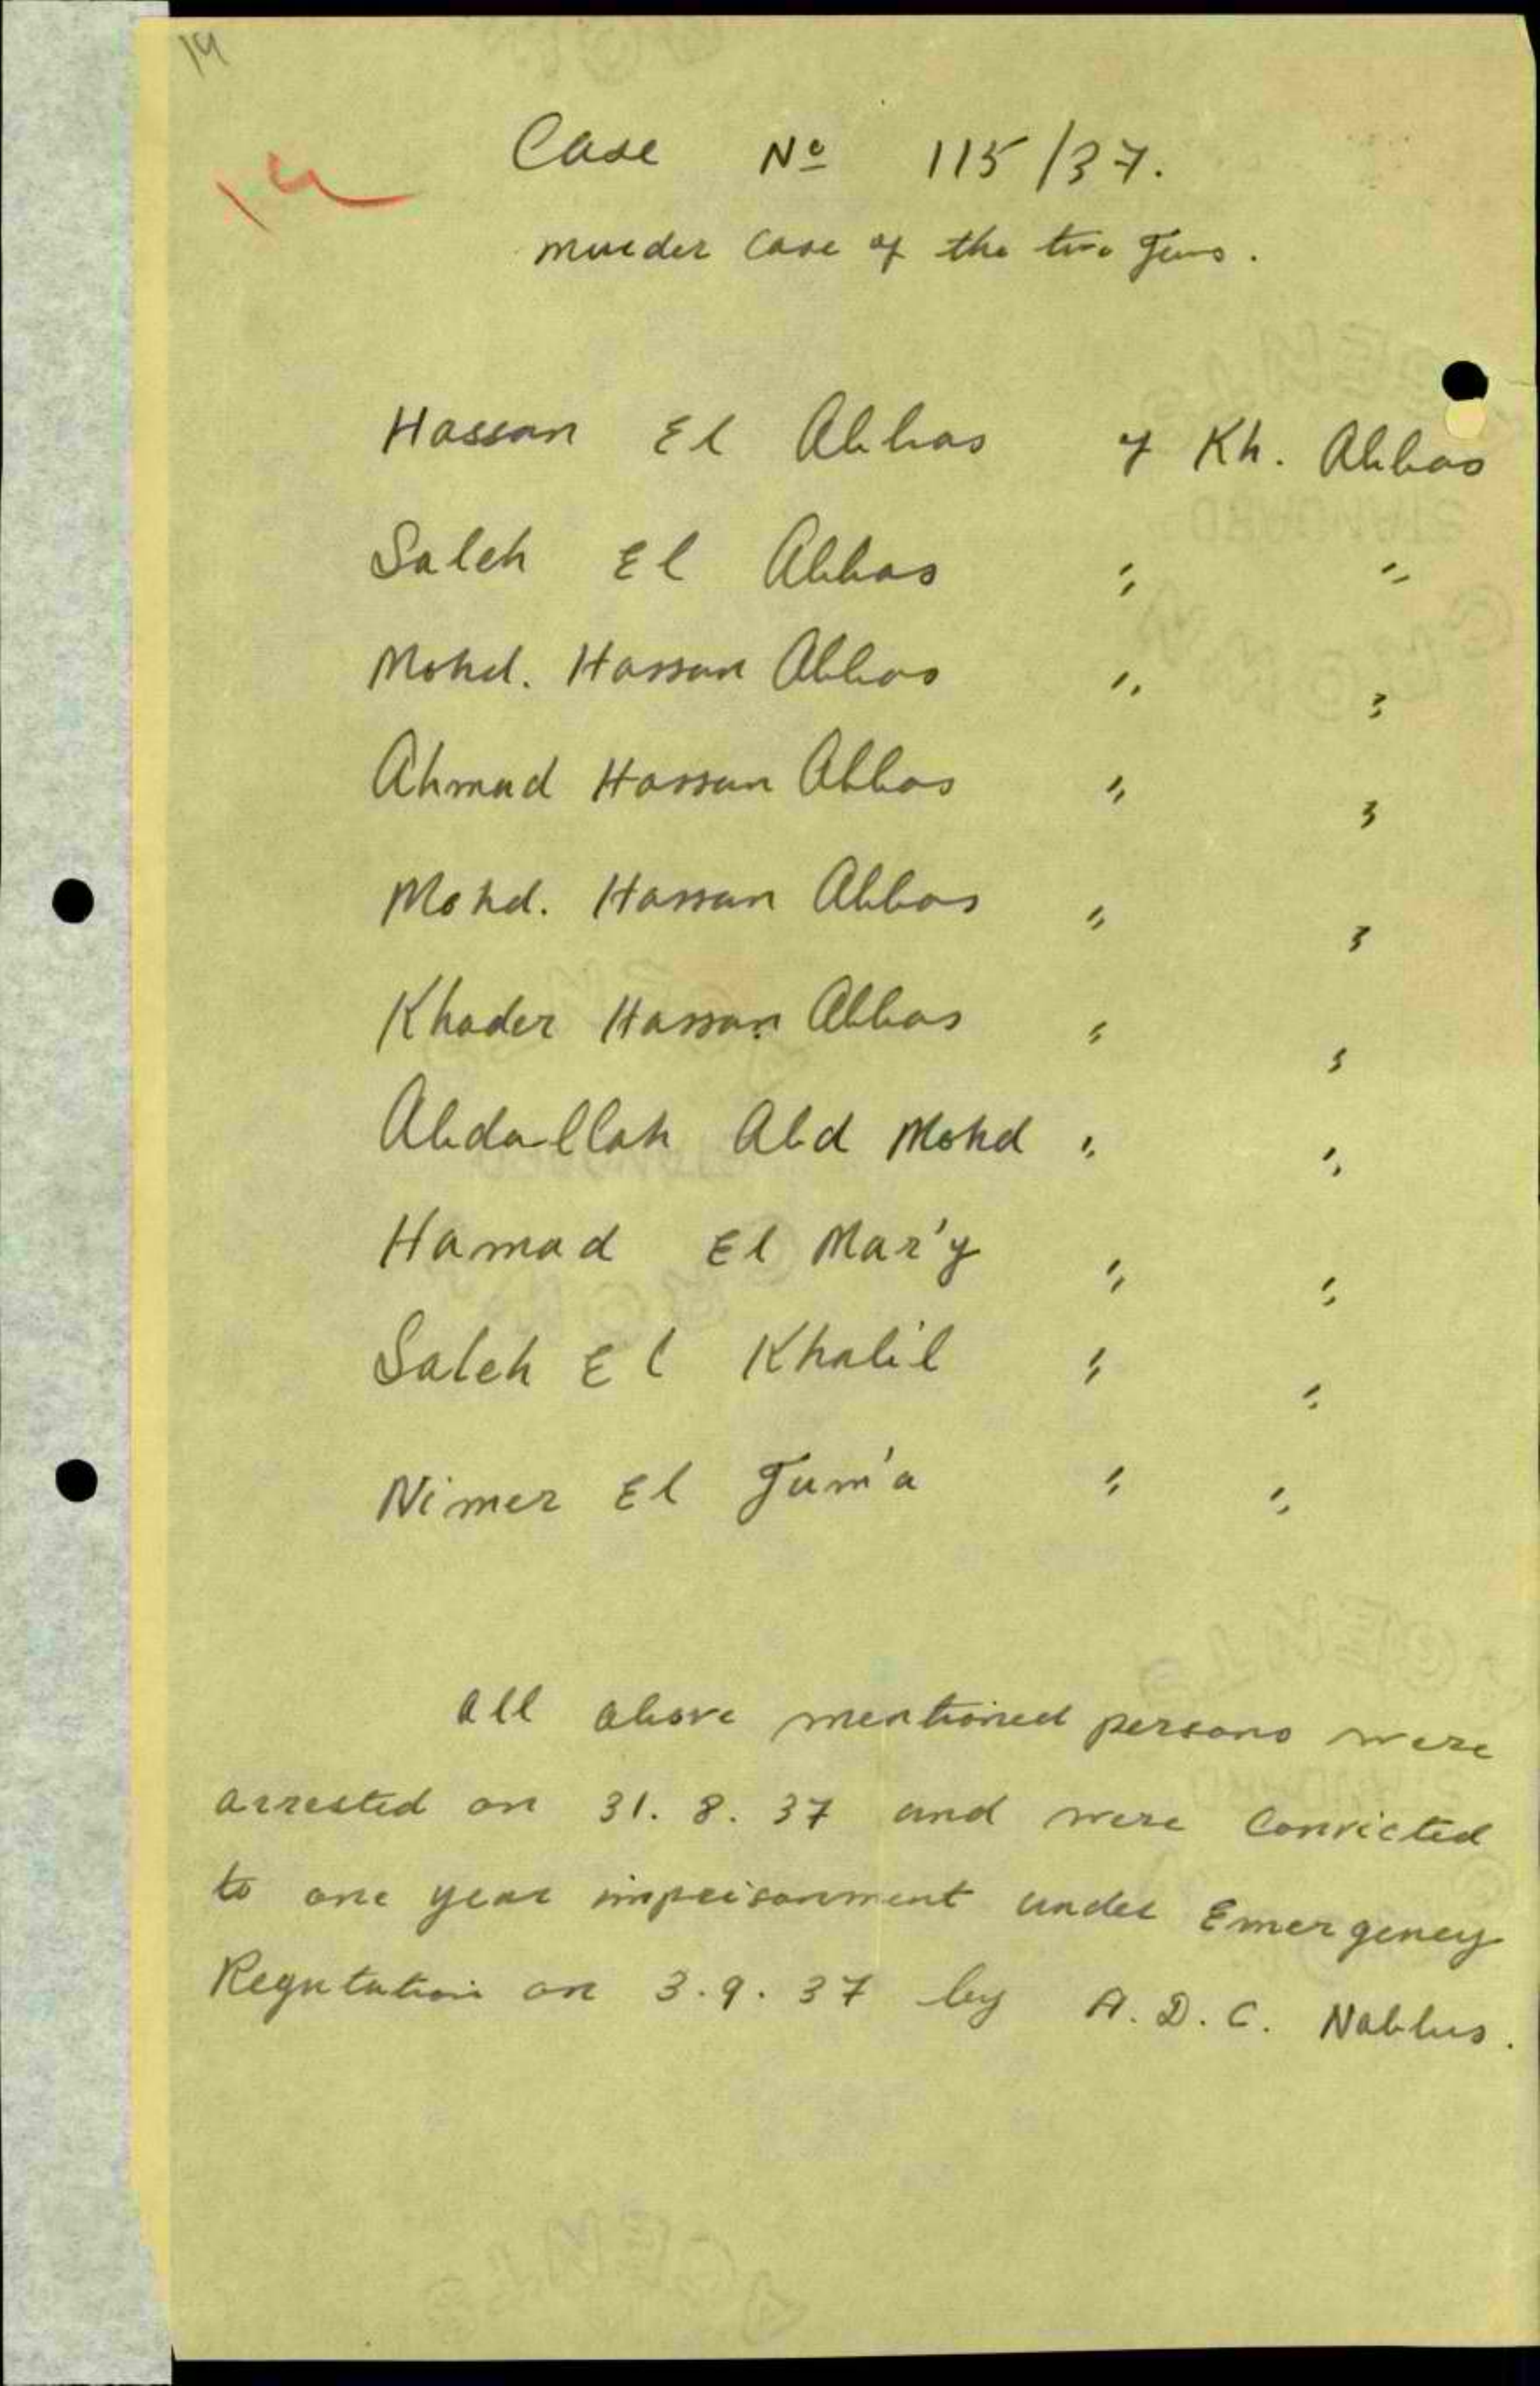 14
14
Case Nº 115/37.
Murder Case of the two Jews.
Hassan El Abbas of Kh. Abbas
Saleh El Abbas " "
Mohd. Hassan Abbas " "
Ahmad Hassan Abbas " "
Mohd. Hassan Abbas " "
Khader Hassan Abbas " "
Abdallah Abd Mohd " "
Hamad El Mar'y " "
Saleh El Khalil " "
Nimer El Jum'a " "
All above mentioned persons were
arrested on 31. 8. 37 and were Convicted
to one year imprisonment under Emergency
Regulation on 3. 9. 37 by A. D. C. Nablus.